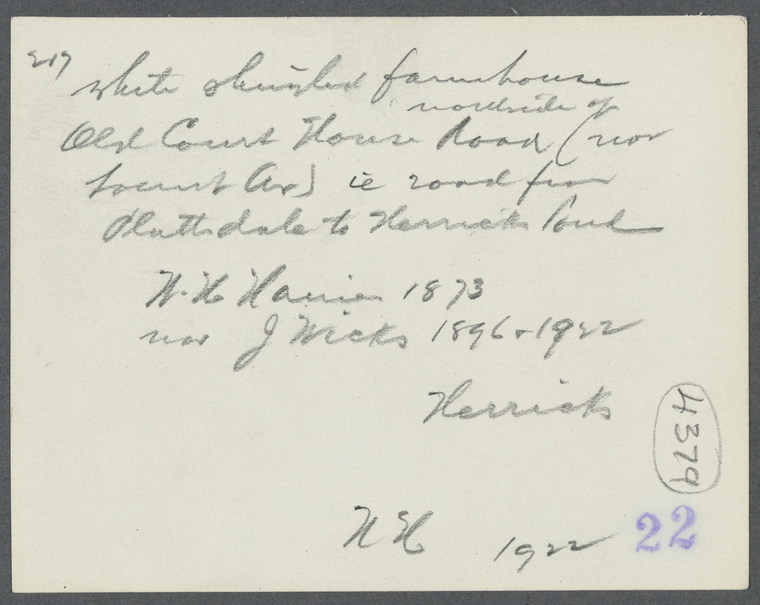 217
white shingled farmhouse
northside of
Old Court House Road (now
Locust Av) ie road from
Plattsdale to Herricks Pond
W. H Harris 1873
now J Wicks 1896 + 1922
Herricks
4379
N H 1922 22